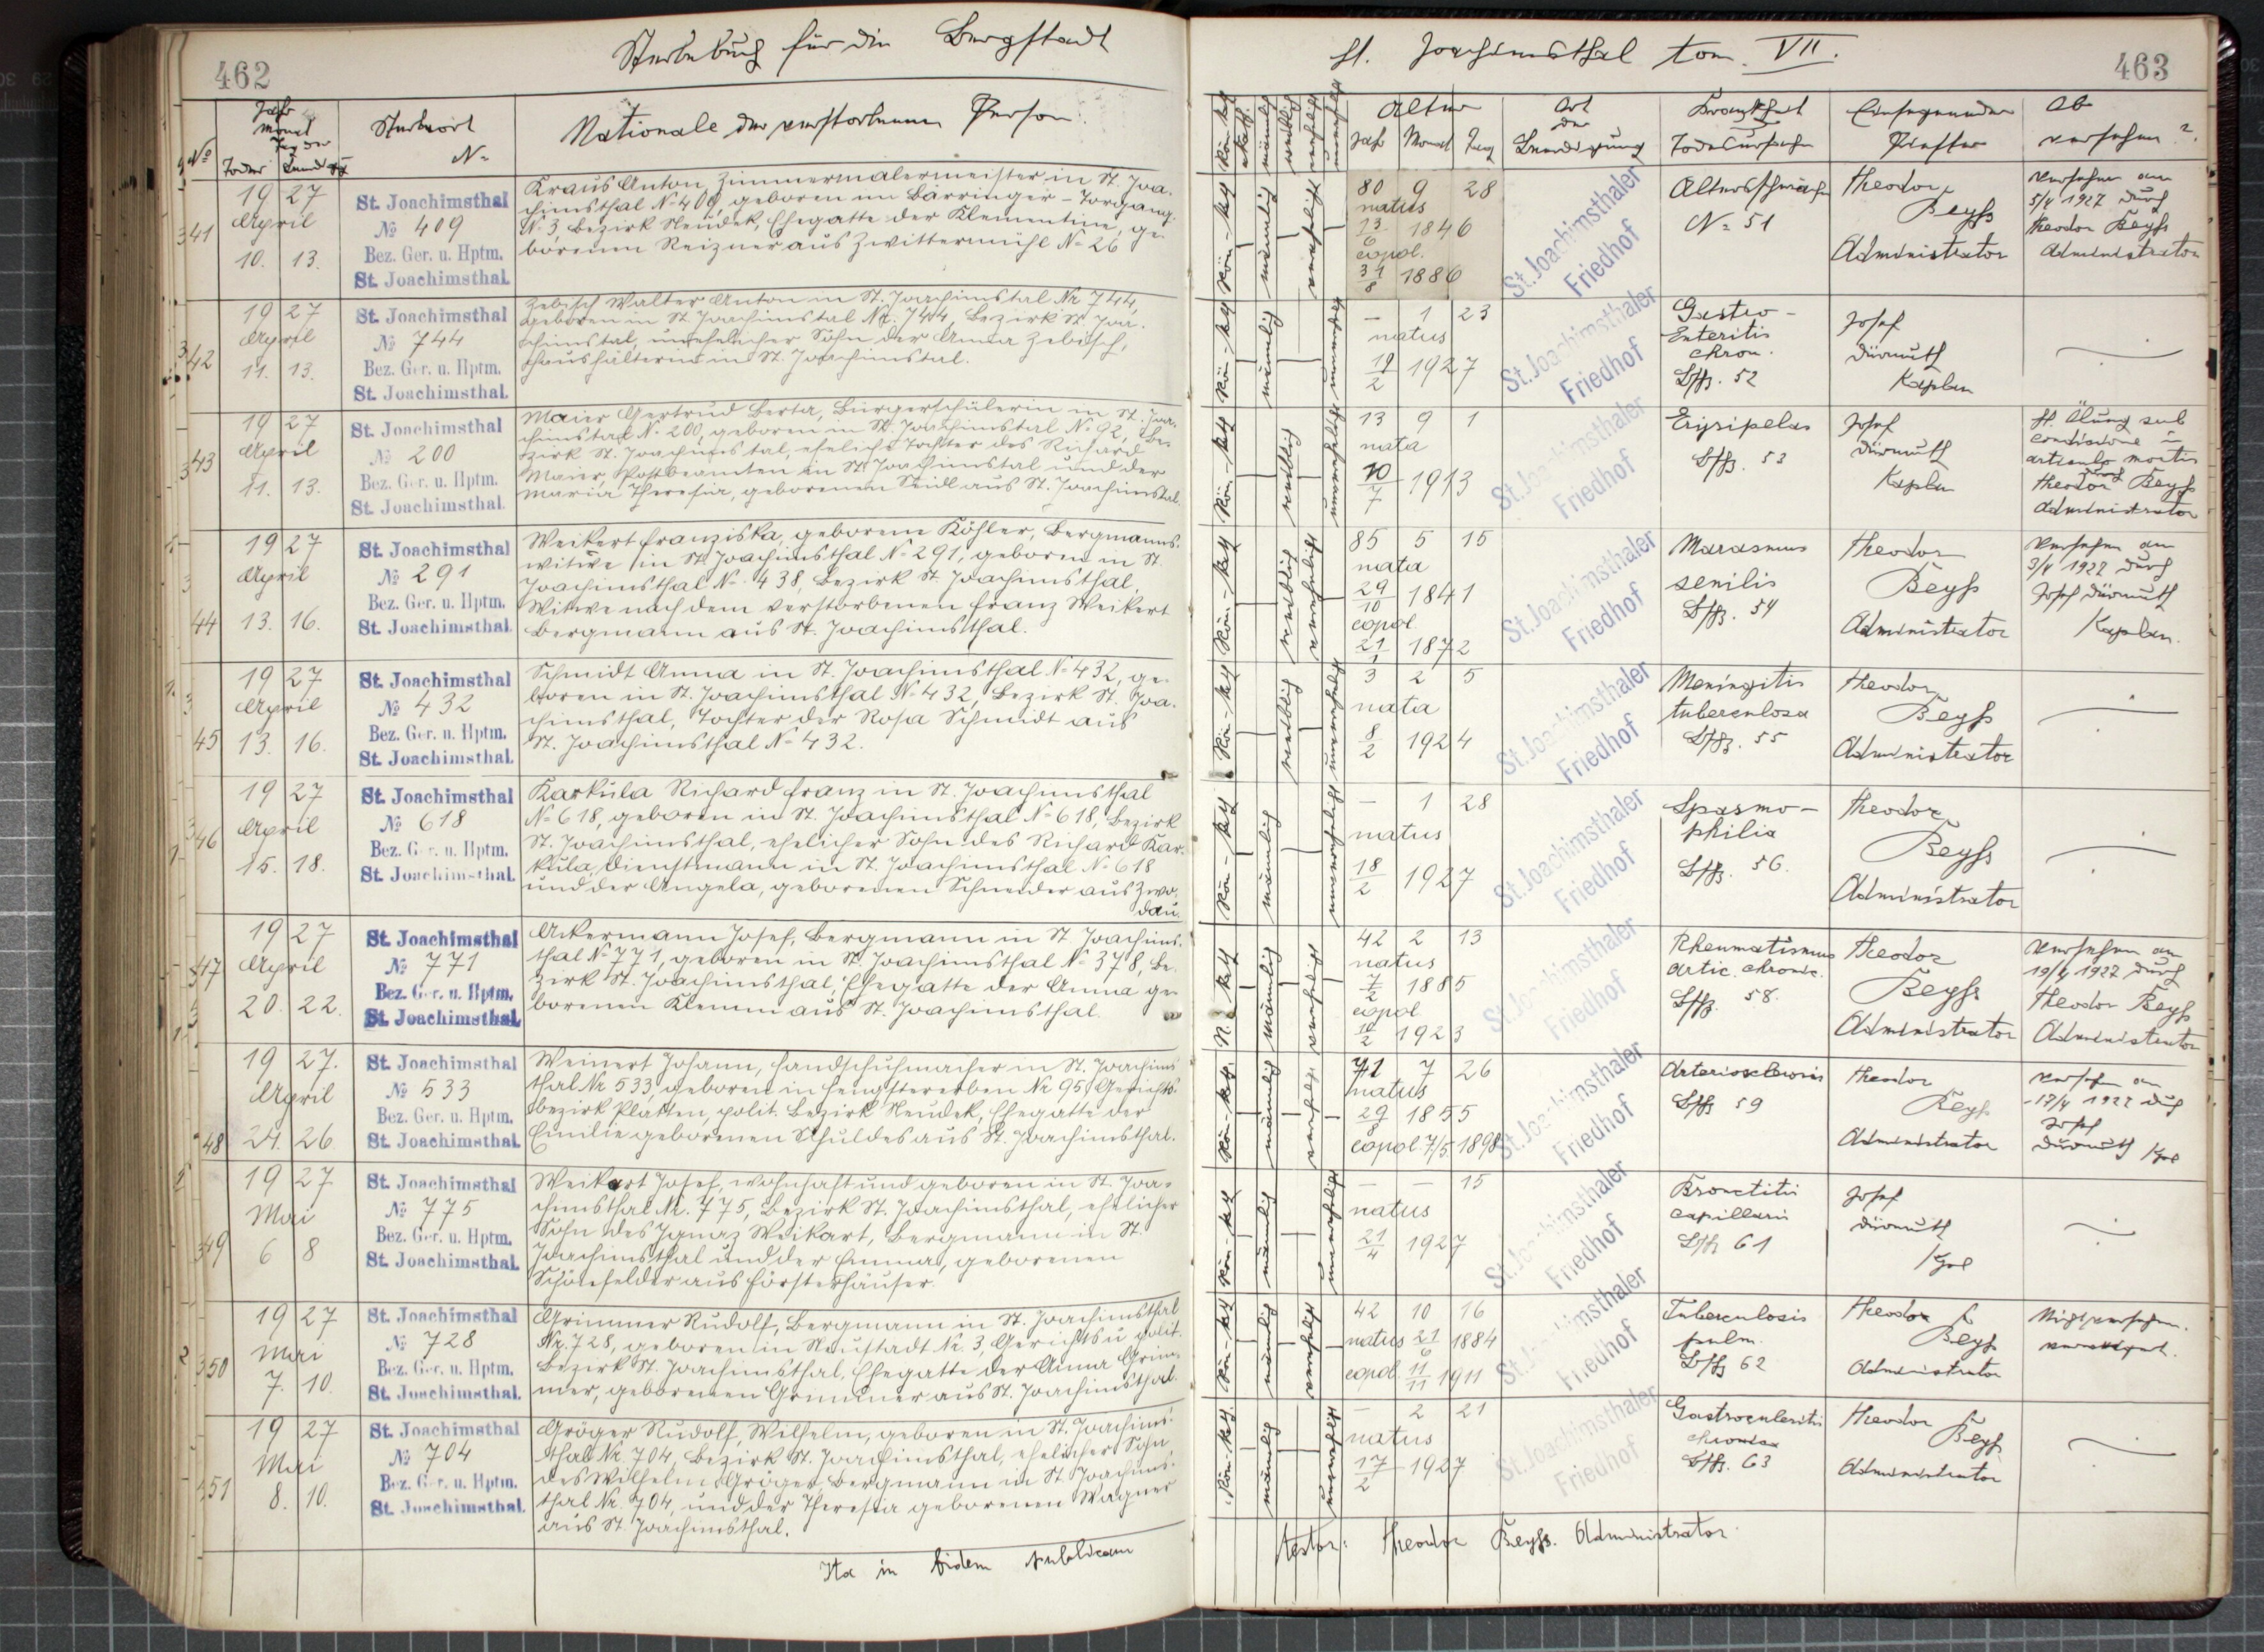 Sterbebuch für die Bergstadt
462
No
Jahr
Monat
Tag der
Sterbeort
No
Nationale der verstorbenen Person.
341
19 27
April
10. 13.
St. Joachimsthal
No 409
Bez. Ger. u. Hptm.
St. Joachimsthal.
Kraus Anton, Zimmermalermeister in St. Joa-
chimsthal No 409, geboren in Bärringer - Torgang
No 3 Bezirk Neudek, Ehegatte der Klementine, ge-
borenen Reizner aus Zwittermühl No 26
342
19 27
April
11. 13.
St. Joachimsthal
No 744
Bez. Ger. u. Hptm.
St. Joachimsthal.
Zebisch Walter Anton in St. Joachimstal Nr 744,
geboren in St. Joachimstal Nr. 744, Bezirk St. Joa-
chimstal, unehelicher Sohn der Anna Zebisch,
Haushälterin in St. Joachimstal.
343
19 27
April
11. 13.
St. Joachimsthal
No 200
Bez. Ger. u. Hptm.
St. Joachimsthal.
Maier Gertrud Berta, Bürgerschülerin in St. Joa-
chimstal No 200, geboren in St. Joachimstal No 92, Be-
zirk St. Joachimstal, eheliche Tochter des Richard
Maier, Postbeamten in St. Joachimstal und der
Maria Theresia, geborenen Seidl aus St. Joachimstal.
3
44
19 27
April
13. 16.
St. Joachimsthal
No 291
Bez. Ger. u. Hptm.
St. Joachimsthal.
Weikert Franziska, geborene Köhler, Bergmanns-
witwe in St. Joachimsthal No 291, geboren in St.
Joachimsthal No 438, Bezirk St. Joachimsthal,
Witwe nach dem verstorbenen Franz Weikert
Bergmann aus St. Joachimsthal.
3
45
19 27
April
13. 16.
St. Joachimsthal
No 432
Bez. Ger. u. Hptm.
St. Joachimsthal.
Schmidt Anna in St. Joachimsthal No 432, ge-
boren in St. Joachimsthal No 432, Bezirk St. Joa-
chimsthal, Tochter der Rosa Schmidt aus
St. Joachimsthal No 432.
346
19 27
April
15. 18.
St. Joachimsthal
No 618
Bez. Ger. u. Hptm.
St. Joachimsthal.
Karkula Richard Franz in St. Joachimsthal
No 618, geboren in St. Joachimsthal No 618, Bezirk
St. Joachimsthal, ehelicher Sohn des Richard Kar-
kula, Dienstmann in St. Joachimsthal No 618
und der Angela, geborenen Schneider aus Zwo-
dau.
347
19 27
April
20. 22.
St. Joachimsthal
No 771
Bez. Ger. u. Hptm.
St. Joachimsthal.
Ackermann Josef, Bergmann in St Joachims-
thal No 771, geboren in St. Joachimsthal No 378, Be-
zirk St. Joachimsthal, Ehegatte der Anna ge-
borenen Klemm aus St. Joachimsthal.
48
19 27.
April
24. 26.
St. Joachimsthal
No 533
Bez. Ger. u. Hptm.
St. Joachimsthal.
Weinert Johann, Handschuhmacher in St. Joachims
thal Nr 533, geboren in Hengstererben Nr 95, Gerichts-
bezirk Platten, polit. Bezirk Neudek, Ehegatte der
Emilie geborenen Schuldes aus St. Joachimsthal.
349
19 27
Mai
6 8
St. Joachimsthal
No 775
Bez. Ger. u. Hptm.
St. Joachimsthal.
Weikart Josef, wohnhaft und geboren in St. Joa-
chimsthal Nr. 775, Bezirk St. Joachimsthal, ehelicher
Sohn des Ignaz Weikart, Bergmann in St.
Joachimsthal und der Emma, geborenen
Schönfelder aus Försterhäuser.
350
19 27
Mai
7. 10.
St. Joachimsthal
No 728
Bez. Ger. u. Hptm.
St. Joachimsthal.
Grimmer Rudolf, Bergmann in St. Joachimsthal
Nr. 728, geboren in Neustadt Nr. 3, Gerichts u polit.
Bezirk St. Joachimsthal, Ehegatte der Anna Grim-
mer, geborenen Grimmer aus St. Joachimsthal.
351
19 27
Mai
8. 10.
St. Joachimsthal
No 704
Bez. Ger. u. Hptm.
St. Joachimsthal.
Gröger Rudolf, Wilhelm, geboren in St. Joachims-
thal Nr. 704, Bezirk St. Joachimsthal, ehelicher Sohn
des Wilhelm Gröger, Bergmann in St Joachims-
thal Nr. 704, und der Theresia geborenen Wagner
aus St. Joachimsthal.
Ita in fidem publicam
St. Joachimsthal tom. VII.
463
männlich
weiblich
Alter
Jahr Monat Tag
Art
der
Beerdigung
Krankheit
Todesursache
Einsegnender
Priester
Ob
versehen?
röm-kath
männlich
verehelicht
80 9 28
natus
13/6 1846
copul.
31/8 1886
St. Joachimsthaler
Friedhof
Altersschwäche
No 51
Theodor
Beyss
Administrator
Versehen am
5/4 1927 durch
Theodor Beyss
Administrator
röm-kath
männlich
— 1 23
natus
19/2 1927
St. Joachimsthaler
Friedhof
Gastro-
Enteritis
chron.
52
Josef
Dürmuth
Kaplan
röm-kath
weiblich
unverehelicht
13 9 1
nata
10/7 1913
St. Joachimsthaler
Friedhof
Erysipelas
53
Josef
Dürmuth
Kaplan
hl. Ölung sub
conditione in
articulo mortis
durch
Theodor Beyss
Administrator
röm-kath
weiblich
verehelicht
85 5 15
nata
29/10 1841
copul.
21/1 1872
St. Joachimsthaler
Friedhof
Marasmus
senilis
54
Theodor
Beyss
Administrator
Versehen am
3/4 1927 durch
Josef Dürmuth
Kaplan.
röm-kath
weiblich
unverehelicht
3 2 5
nata
8/2 1924
St. Joachimsthaler
Friedhof
Meningitis
tuberculosa
55
Theodor
Beyss
Administrator
röm-kath
männlich
unverehelicht
— 1 28
natus
18/2 1927
St. Joachimsthaler
Friedhof
Spasmo-
philia
56.
Theodor
Beyss
Administrator
männlich
verehelicht
42 2 13
natus
7/2 1885
copul
10/2 1923
St. Joachimsthaler
Friedhof
Rheumatismus
artic. chronic.
58.
Theodor
Beyss
Administrator
Versehen am
19/4 1927 durch
Theodor Beyss
Administrator
röm-kath.
männlich
verehelicht
71 7 26
natus
29/8 1855
copul. 7/5 1898
St. Joachimsthaler
Friedhof
Arteriosclerosis
59
Theodor
Beyss
Administrator
Versehen am
17/4 1927 durch
Josef
Dürmuth
röm-kath
männlich
unverehelicht
— — 15
natus
21/4 1927
St. Joachimsthaler
Friedhof
Bronctitis
capillaris
61
Josef
Dürmuth
röm-kath
männlich
verehelicht
42 10 16
natus 21/6 1884
copul. 11/11 1911
St. Joachimsthaler
Friedhof
Tuberculosis
pulm.
62
Theodor
Beyss
Administrator
Nicht versehen.
röm-kath.
männlich
unverehelicht
— 2 21
natus
17/2 1927
St. Joachimsthaler
Friedhof
Gastroenteritis
chronica
63
Theodor Beyss
Administrator
testor: Theodor Beyss. Administrator.